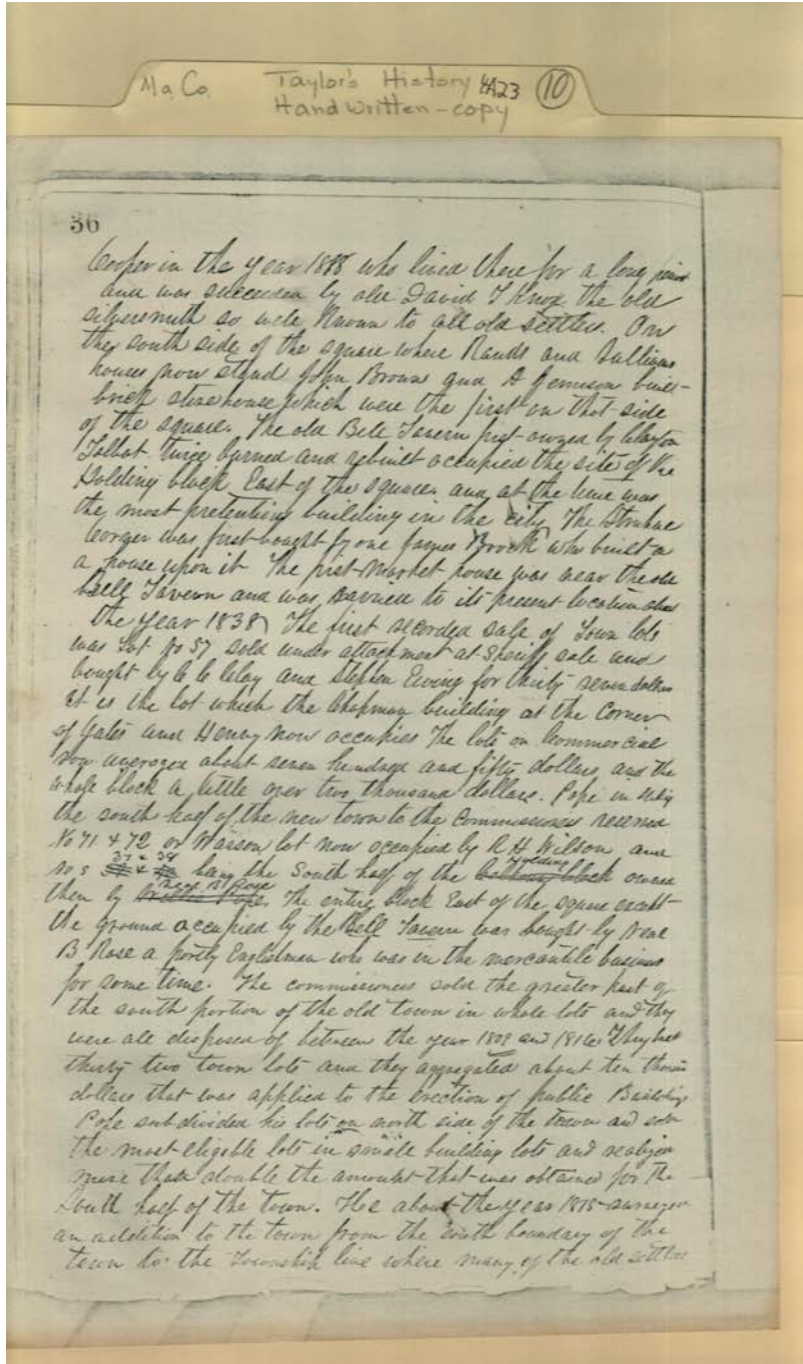 Ma. Co. Taylor's History 4A23 10
Handwritten - copy
36
Cooper in the year 1818 who lived there for a long
and was succeeded by old David T Knox the old
silversmith so well known to all old settlers. On
the south side of the square where Rands and Sullivans
houses now stand John Brown and A Jemison built
brick storehouse which were the first on that side
of the square. The old Bell Tavern first owned by Clayton
Talbot twice burned and rebuilt occupied the site of the
Holding block East of the square and at the time was
the most pretentious building in the city. The Struhue
Corner was first bought by one James Brock who built a
a house upon it The first Market house was near the old
Bell Tavern and was to its present location about
the year 1838 The first recorded sale of Town lots
was Lot No 57 sold under attachment at Sheriff sale and
bought by C C Clay and Stephen Ewing for thirty seven dollars
It is the lot which the Chapman building at the corner
of Gates and Henry now occupies The lots on Commercial
row averaged about seven hundred and fifty dollars, and the
whole block a little over two thousand dollars. Pope in
the south half of the new town to the commissioners reserved
No 71 & 72 or Wasson lot now occupied by R H Wilson and
No s 37 & 38 being the South half of the Holding block owned
then by Neal B Rose The entire block East of the square except
the ground occupied by the Bell Tavern was bought by Neal
B Rose a portly Englishman who was in the mercantile business
for some time. The commissioners sold the greater part of
the south portion of the old town in whole lots and they
were all disposed of between the year 1809 and 1816
thirty two town lots and they aggregated about ten thousand
dollars that was applied to the erection of public Buildings
Pope subdivided his lots on north side of the town and sold
the most eligible lots in small building lots and
more than double the amount that was obtained for the
South half of the town. He about the year 1818
an addition to the town from the south boundary of the
town to the Township line where many of the old settlers